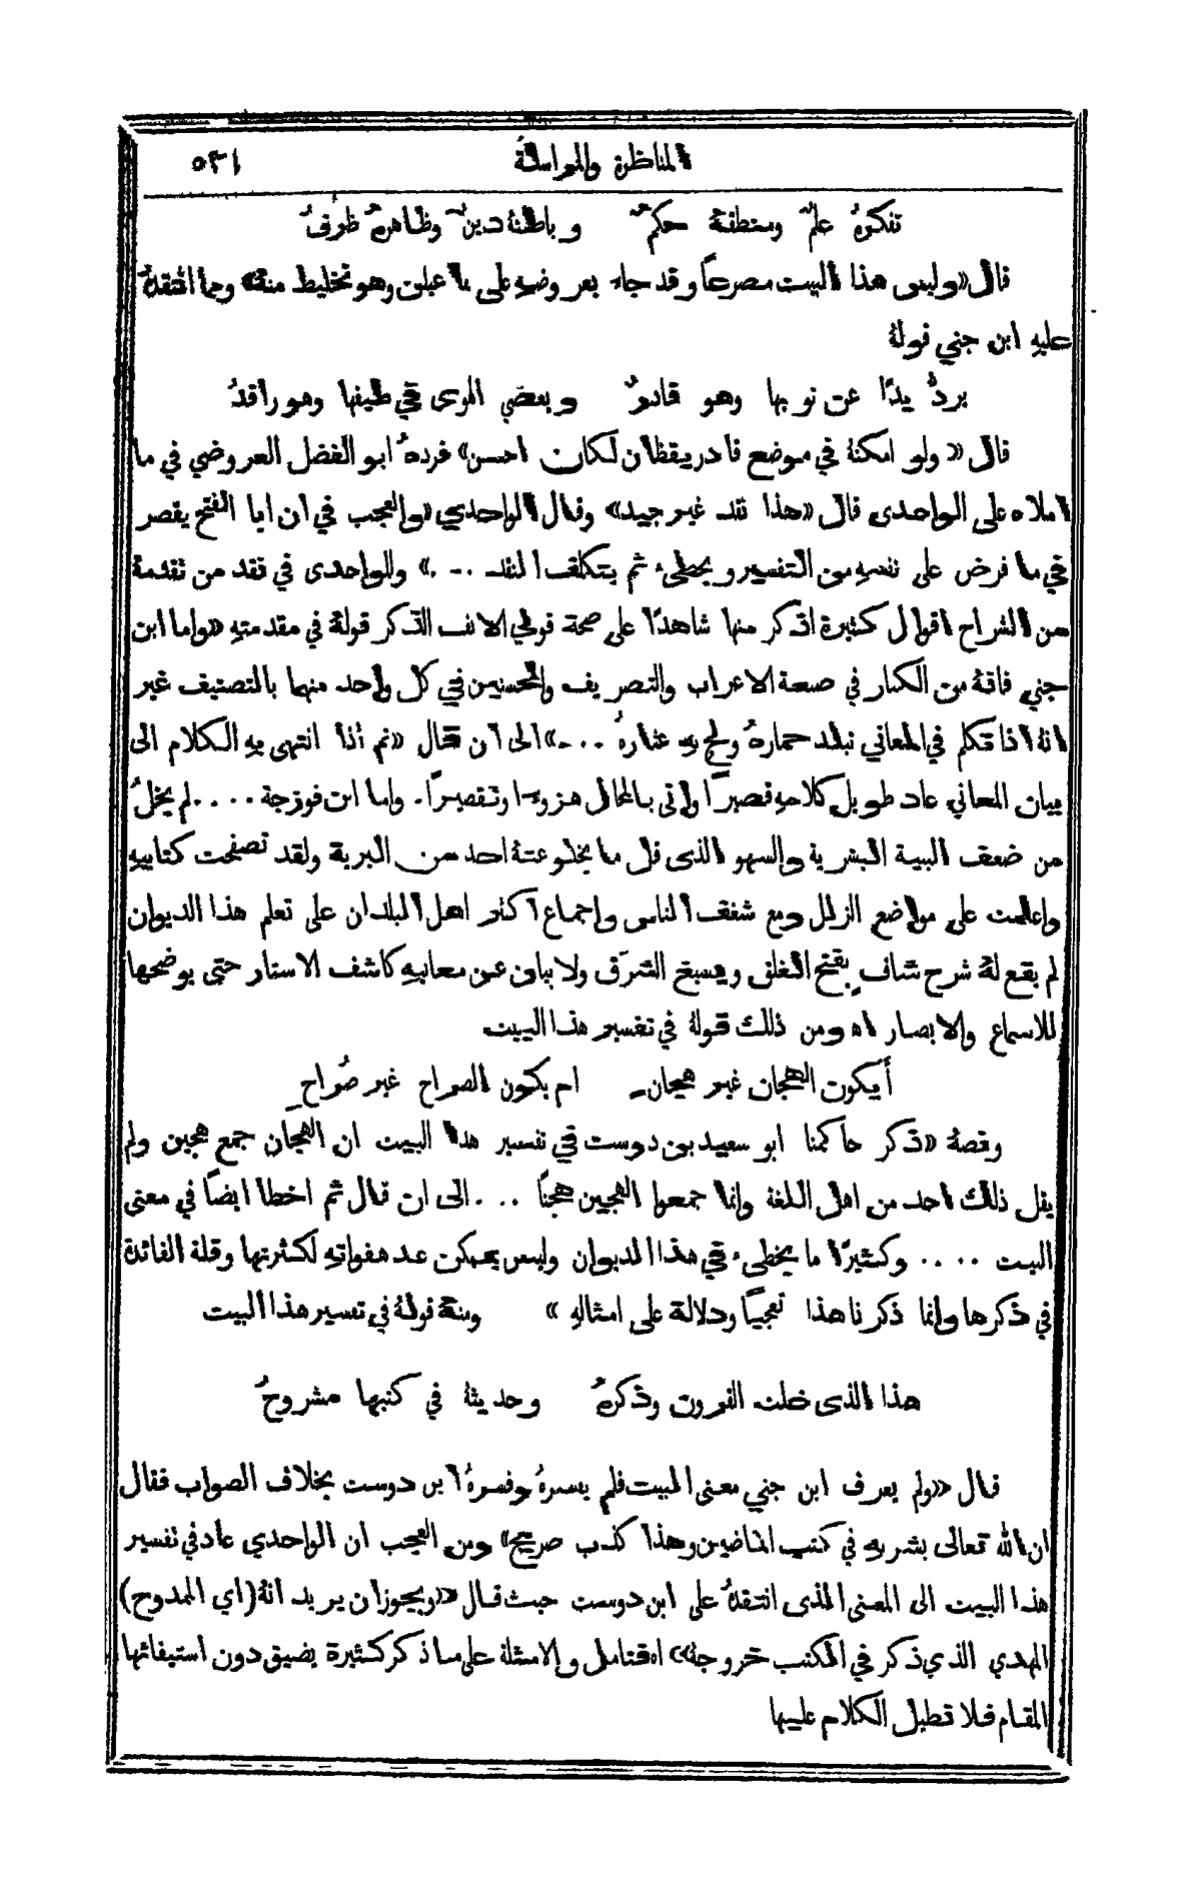 المناظرة والمراسلة ٥٣١
تفكرهُ علمٌ ومنطقهُ حكمٌ وباطنهُ دينٌ وظاهرهُ ظرفُ
قال «وليس هذا البيت مصرعًا وقد جاء بعروضه على مفاعيلن وهو تخليط منه» ومما انتقدهُ
عليهِ ابن جني قولهُ
يردُّ يدًا عن ثوبها وهو قادرٌ ويعصي الهوى في طيفها وهو راقدُ
قال «ولو امكنهُ في موضع قادر يقظان لكان احسن» فردهُ ابو الفضل العروضي في ما
املاه على الواحدي قال «هذا نقد غير جيد» وقال الواحدي «والعجب في ان ابا الفتح يقصر
في ما فرض على نفسهِ من التفسير ويخطئ ثم يتكلف النقد ...» وللواحدي في نقد من تقدمهُ
من الشراح اقوال كثيرة اذكر منها شاهدًا على صحة قولي الانف الذكر قولهُ في مقدمتهِ «واما ابن
جني فانهُ من الكبار في صنعة الاعراب والتصريف والمحسنين في كل واحد منهما بالتصنيف غير
انهُ اذا تكلم في المعاني تبلد حمارهُ ولج به عثارهُ ...» الى ان قال «ثم اذا انتهى بهِ الكلام الى
بيان المعاني عاد طويل كلامهِ قصيرًا واتى بالمحال هزوءًا وتقصيرًا. واما ابن فورجة .... لم يخلُ
من ضعف البنية البشرية والسهو الذي قل ما يخلو عنهُ احد من البرية ولقد تصفحت كتابيهِ
واعلمت على مواضع الزلل ومع شغف الناس واجماع اكثر اهل البلدان على تعلم هذا الديوان
لم يقع لهُ شرح شاف يفتح الغلق ويسيغ الشرَق ولا بيان عن معانيهِ كاشف الاستار حتى يوضحها
للاسماع والابصار اه ومن ذلك قولهُ في تفسير هذا البيت
أيكون الهجان غير هجان ام يكون الصراح غير صُراح
ونصهُ «ذكر حاكمنا ابو سعيد بن دوست في تفسير هذا البيت ان الهجان جمع هجين ولم
يقل ذلك احد من اهل اللغة وانما جمعوا الهجين هجنًا ... الى ان قال ثم اخطا ايضًا في معنى
البيت .... وكثيرًا ما يخطئ في هذا الديوان وليس يمكن عد هفواتهِ لكثرتها وقلة الفائدة
في ذكرها وانما ذكرنا هذا تعجبًا ودلالة على امثالهِ» ومنهُ قولهُ في تفسير هذا البيت
هذا الذي خلت القرون وذكرهُ وحديثهُ في كتبها مشروحُ
قال «ولم يعرف ابن جني معنى البيت فلم يفسرهُ وفسرهُ ابن دوست بخلاف الصواب فقال
ان الله تعالى بشر بهِ في كتب الماضين وهذا كذب صريح» ومن العجب ان الواحدي عاد في تفسير
هذا البيت الى المعنى الذي انتقدهُ على ابن دوست حيث قال «ويجوز ان يريد انهُ (اي الممدوح)
المهدي الذي ذكر في الكتب خروجهُ» اه فتامل والامثلة على ما ذكر كثيرة يضيق دون استيفائها
المقام فلا نطيل الكلام عليها